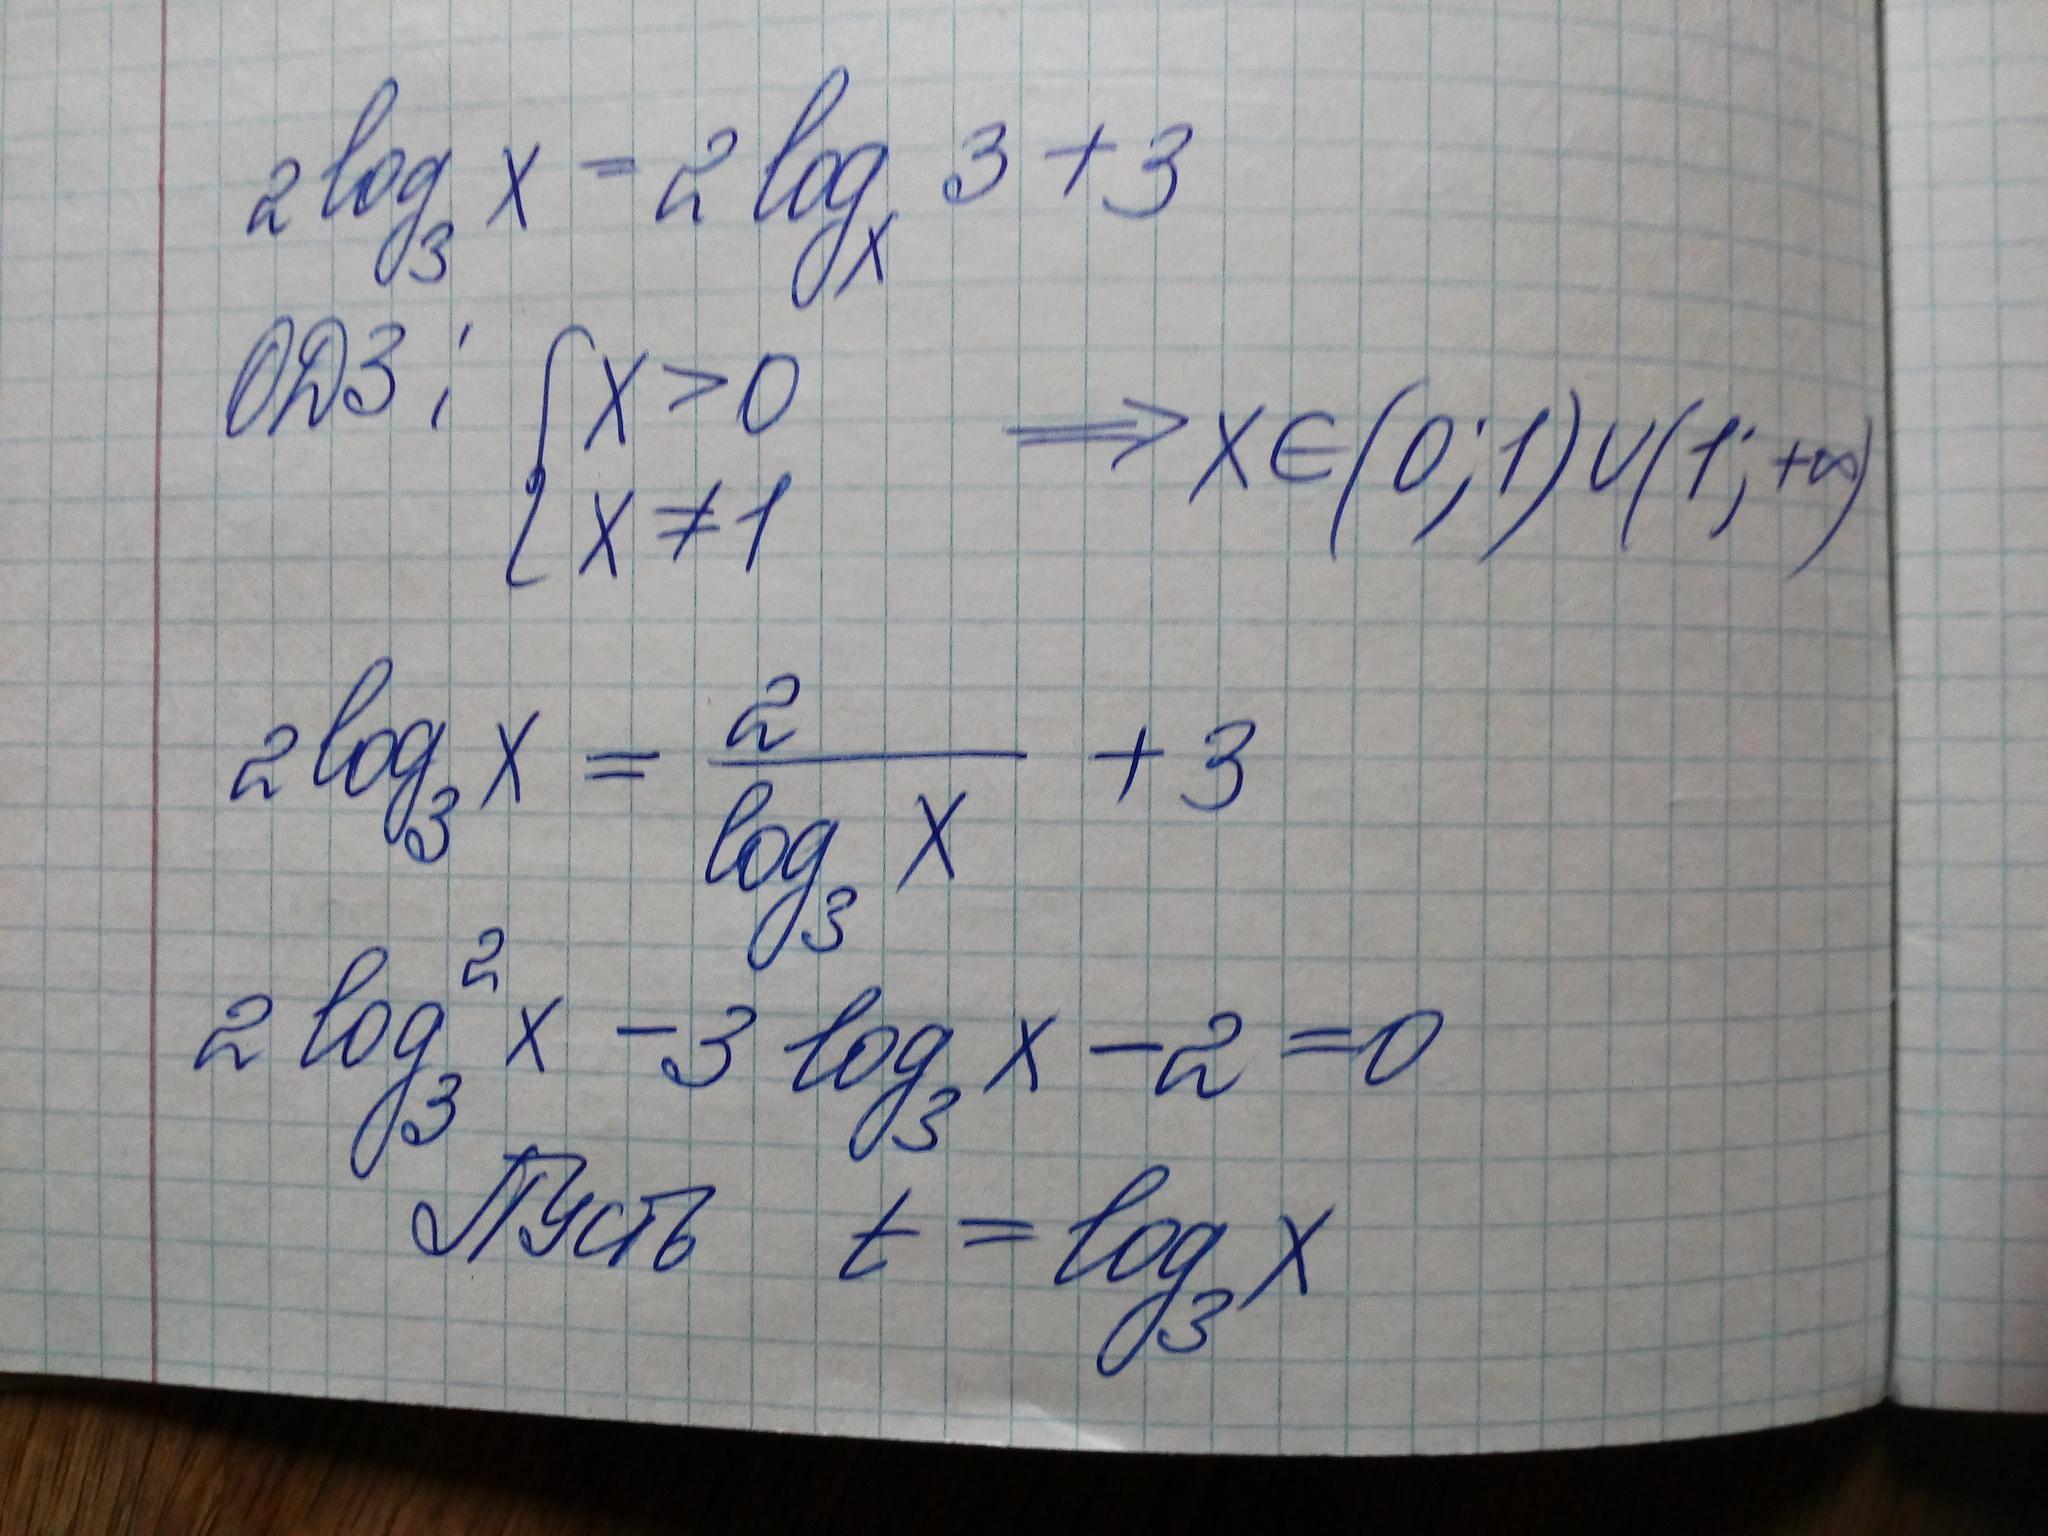 2log₃ x = 2 logₓ 3 + 3
ОДЗ: { x > 0 ⟹ x ∈ (0; 1) ∪ (1; +∞)
x ≠ 1
2log₃ x = 2 / log₃ x + 3
2 log₃² x - 3 log₃ x - 2 = 0
Пусть t = log₃ x